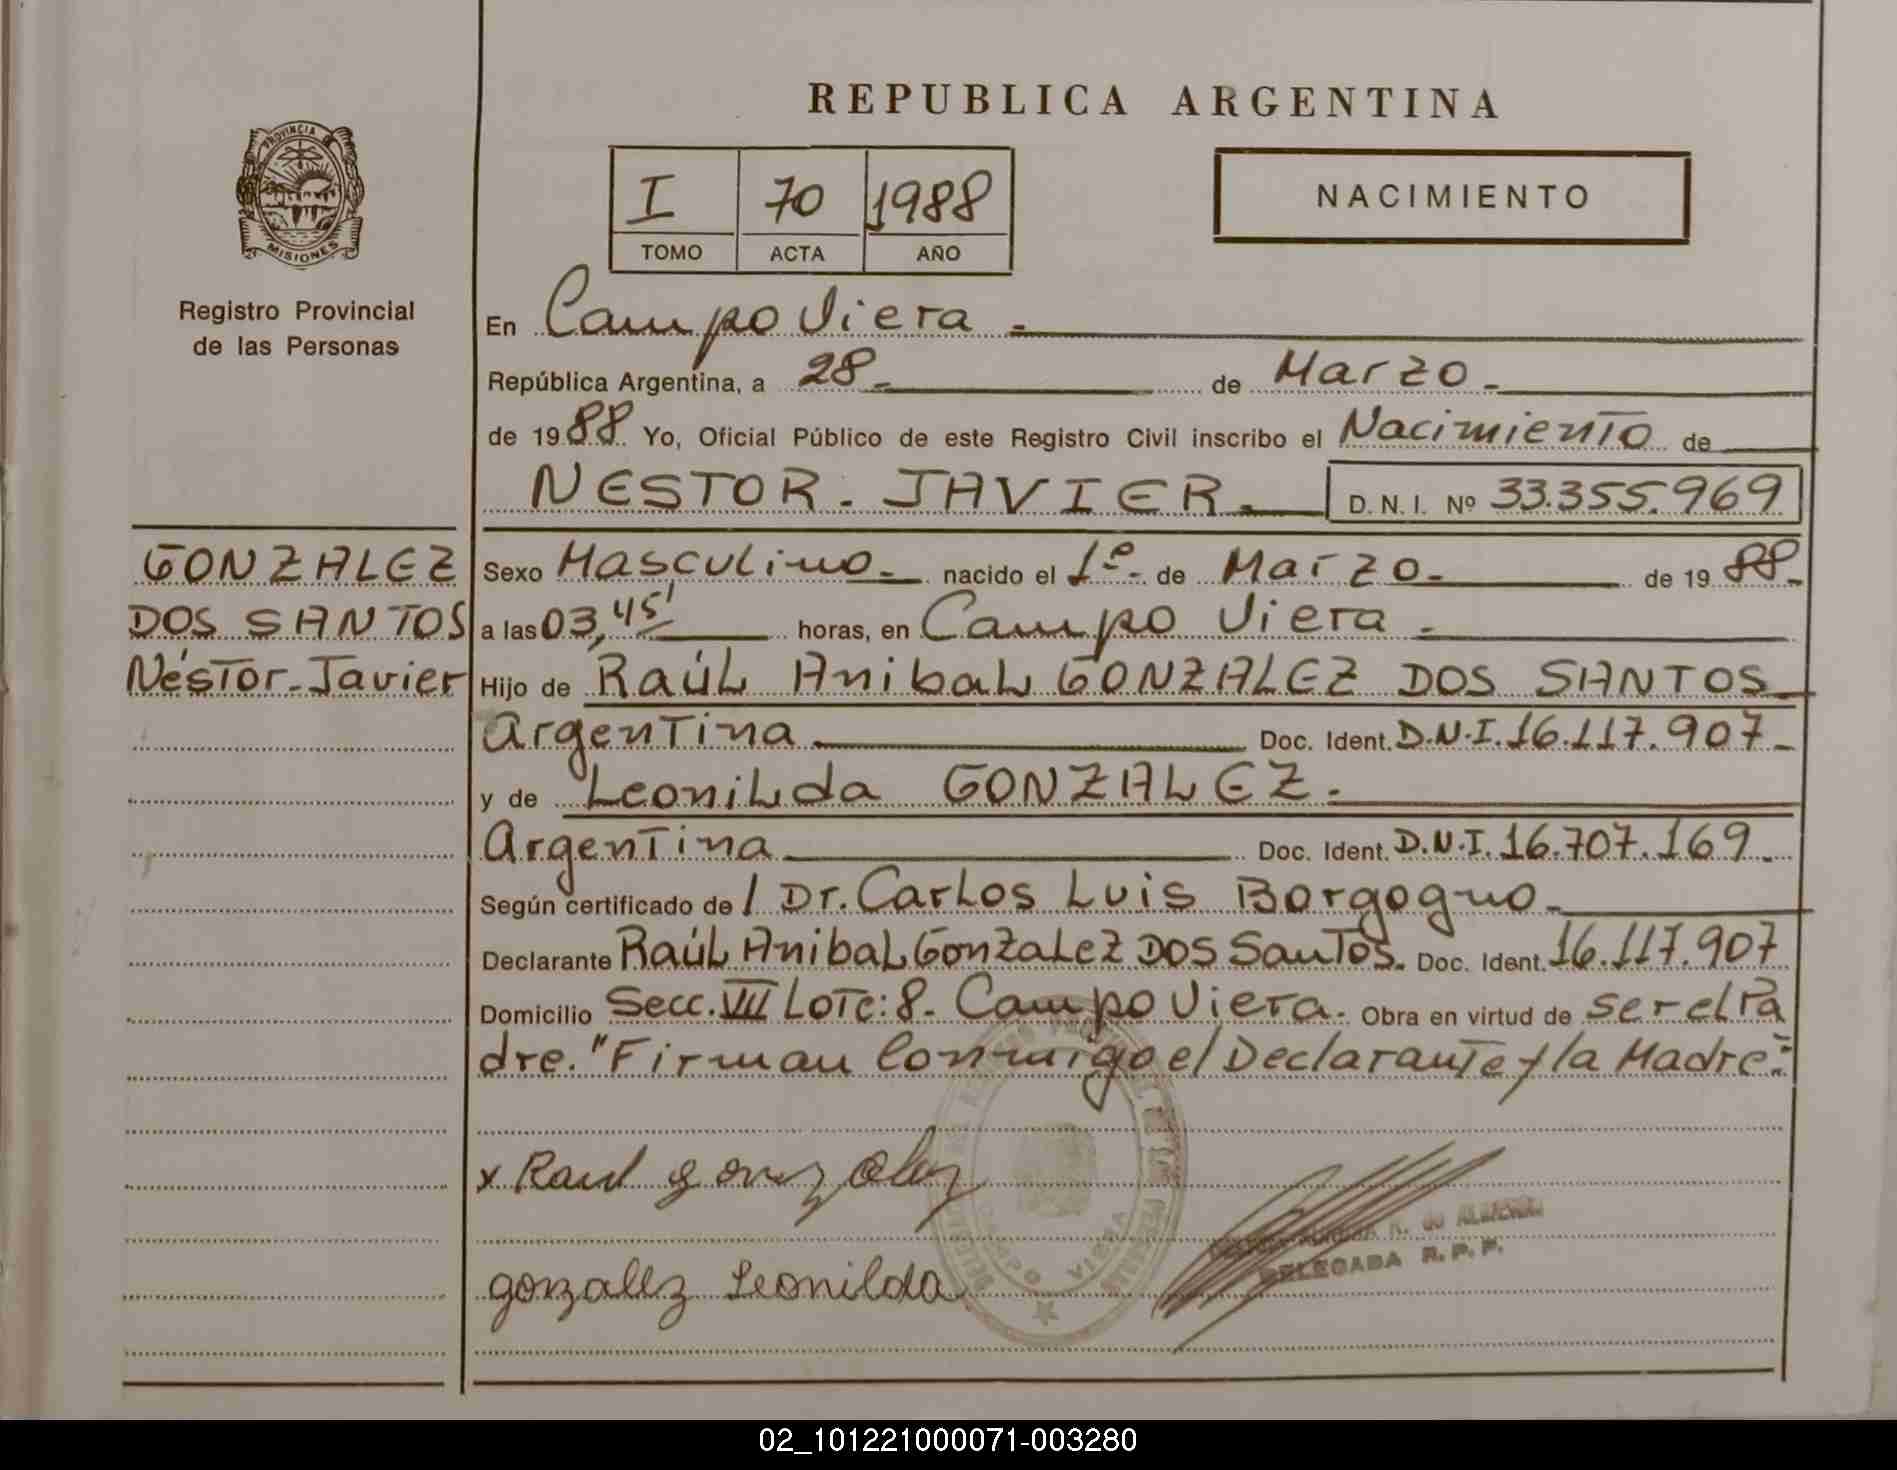 REPUBLICA ARGENTINA
PROVINCIA DE
MISIONES
Registro Provincial
de las Personas
I 70 1988
TOMO ACTA AÑO
NACIMIENTO
En Campo Viera.-
República Argentina, a 28.- de Marzo.-
de 1988. Yo, Oficial Público de este Registro Civil inscribo el Nacimiento de
NESTOR. JAVIER.- D. N. I. Nº 33.355.969
GONZALEZ
DOS SANTOS
Néstor-Javier
Sexo Masculino.- nacido el 1º.- de Marzo.- de 1988.-
a las 03,45' horas, en Campo Viera.-
Hijo de Raúl Anibal GONZALEZ DOS SANTOS
Argentina Doc. Ident. D.N.I. 16.117.907-
y de Leonilda GONZALEZ.-
Argentina Doc. Ident. D.N.I. 16.707.169.-
Según certificado de / Dr. Carlos Luis Borgogno.-
Declarante Raúl Anibal Gonzalez Dos Santos. Doc. Ident. 16.117.907
Domicilio Secc. VII Lote: 8- Campo Viera. Obra en virtud de ser el Pa
dre. "Firman Conmigo el Declarante y la Madre."
x Raul gonzalez
gonzalez Leonilda
CAMPO VIERA
DELEGADA R. P. P.
02_101221000071-003280